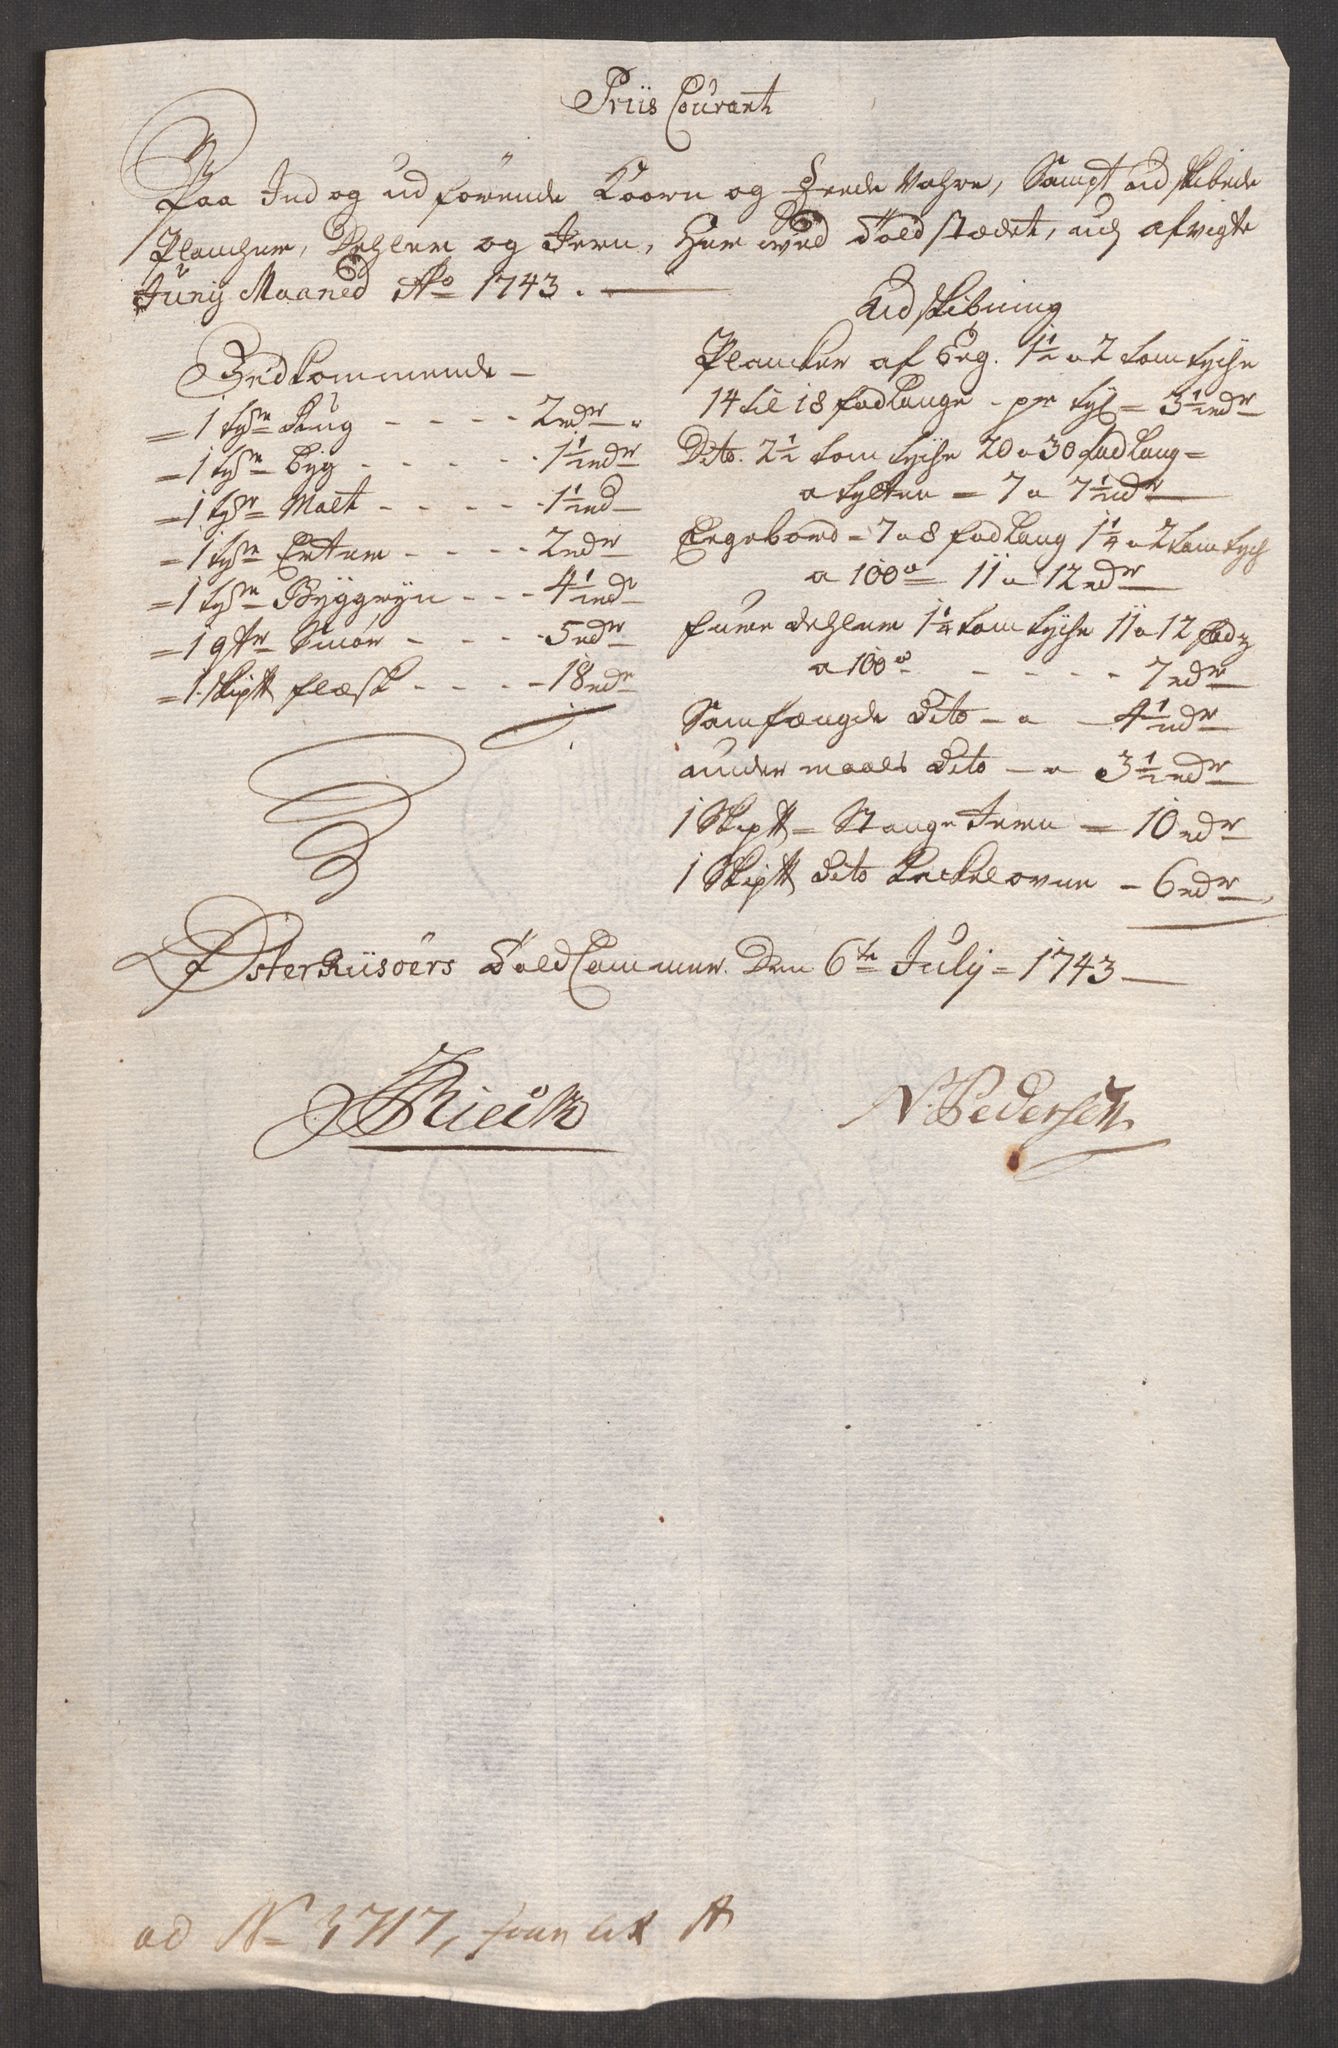 Priis Courant
Paa Ind og udförende Koorn og Feede Vahre, Sampt udskibede
Plancher, Dehler og Jern, Her ved Toldstædet, udj afvigte
Junij Maaned Ao 1743.
Indkommende
1 tydr Rug - - - 2 rdr
1 tydr Byg - - - - 1 1/2 rdr
1 tydr Malt - - - - 1 1/2 rd
1 tydr Erter - - - - 2 rdr
1 tydr Byggryn - - - 4 1/2 rd
1 qtr Smör - - - - 5 rdr
1 Skip℔ flæsk - - - - 18 rdr
Udskibning
Plancker af Eeg. 1 1/2 a 2 tom tyche
14 til 18 fod lange - per tylt = 3 1/2 rdr
Dito. 2 1/2 tom tyche 20 a 30 fod lang =
a tylten = 7 a 7 1/2 rdr
Eegebord = 7 a 8 fod lang 1 1/4 a 2 tom tych
a 100de 11 a 12 rdr
furre dehler 1 1/4 tom tyche 11 a 12 fod
a 100de - - - - 7 rdr
Samfængde Dito - a - 4 1/2 rdr
under maals Dito - a 3 1/2 rdr
1 Skip℔ = Stange Jern = 10 rdr
1 Skip℔ Dito Kackelovne - 6 rdr
Østerriisöers Told Cammer. Den 6te July = 1743
N. Pedersen
ad No 3717, Lit A